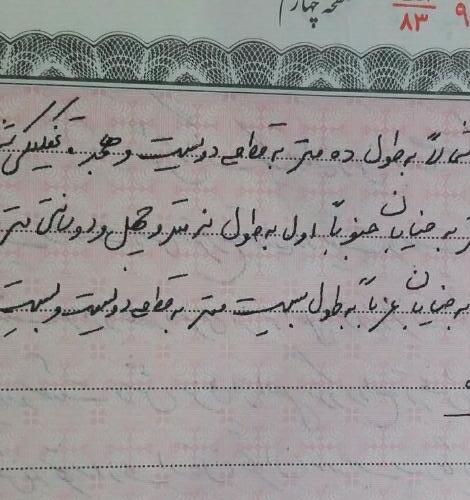 صفحه چهارم
۹
۸۳
شمالاً بطول ده متر به قطعه دویست و هجده تفکیکی
به خیابان جنوباً اول بطول نه متر و چهل و دو سانتی متر
به خیابان غرباً بطول بیست متر به قطعه دویست و بیست